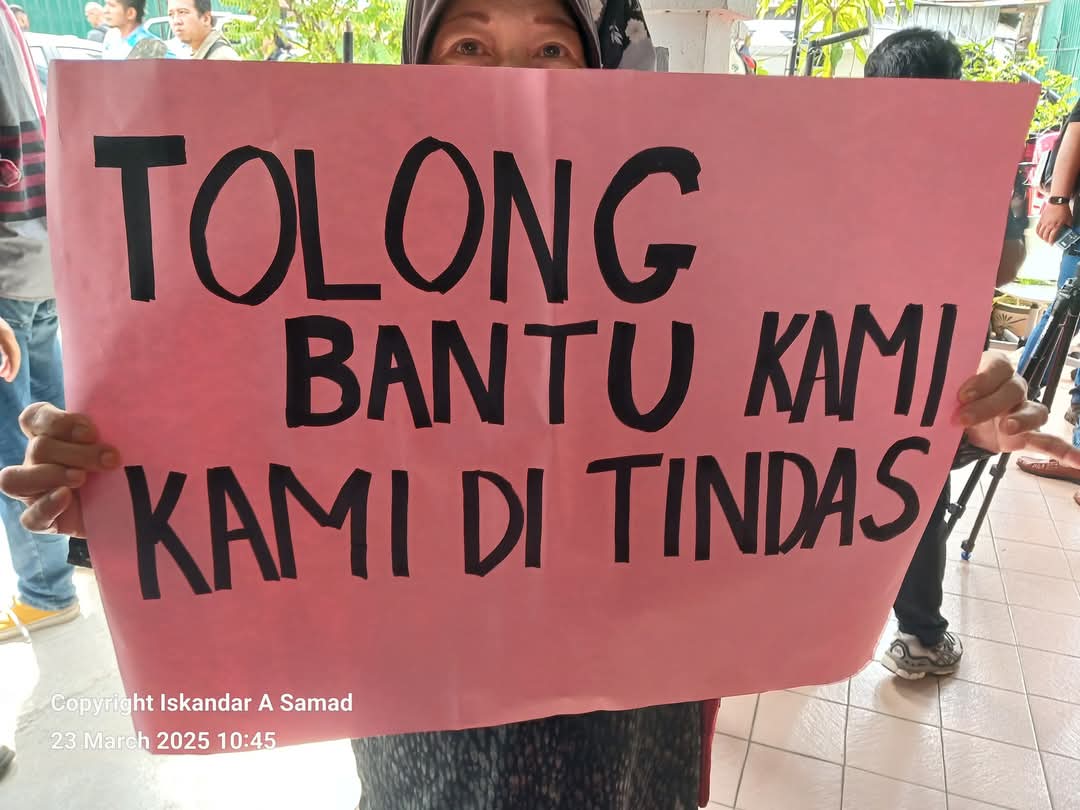 TOLONG
BANTU KAMI
KAMI DI TINDAS
Copyright Iskandar A Samad
23 March 2025 10:45